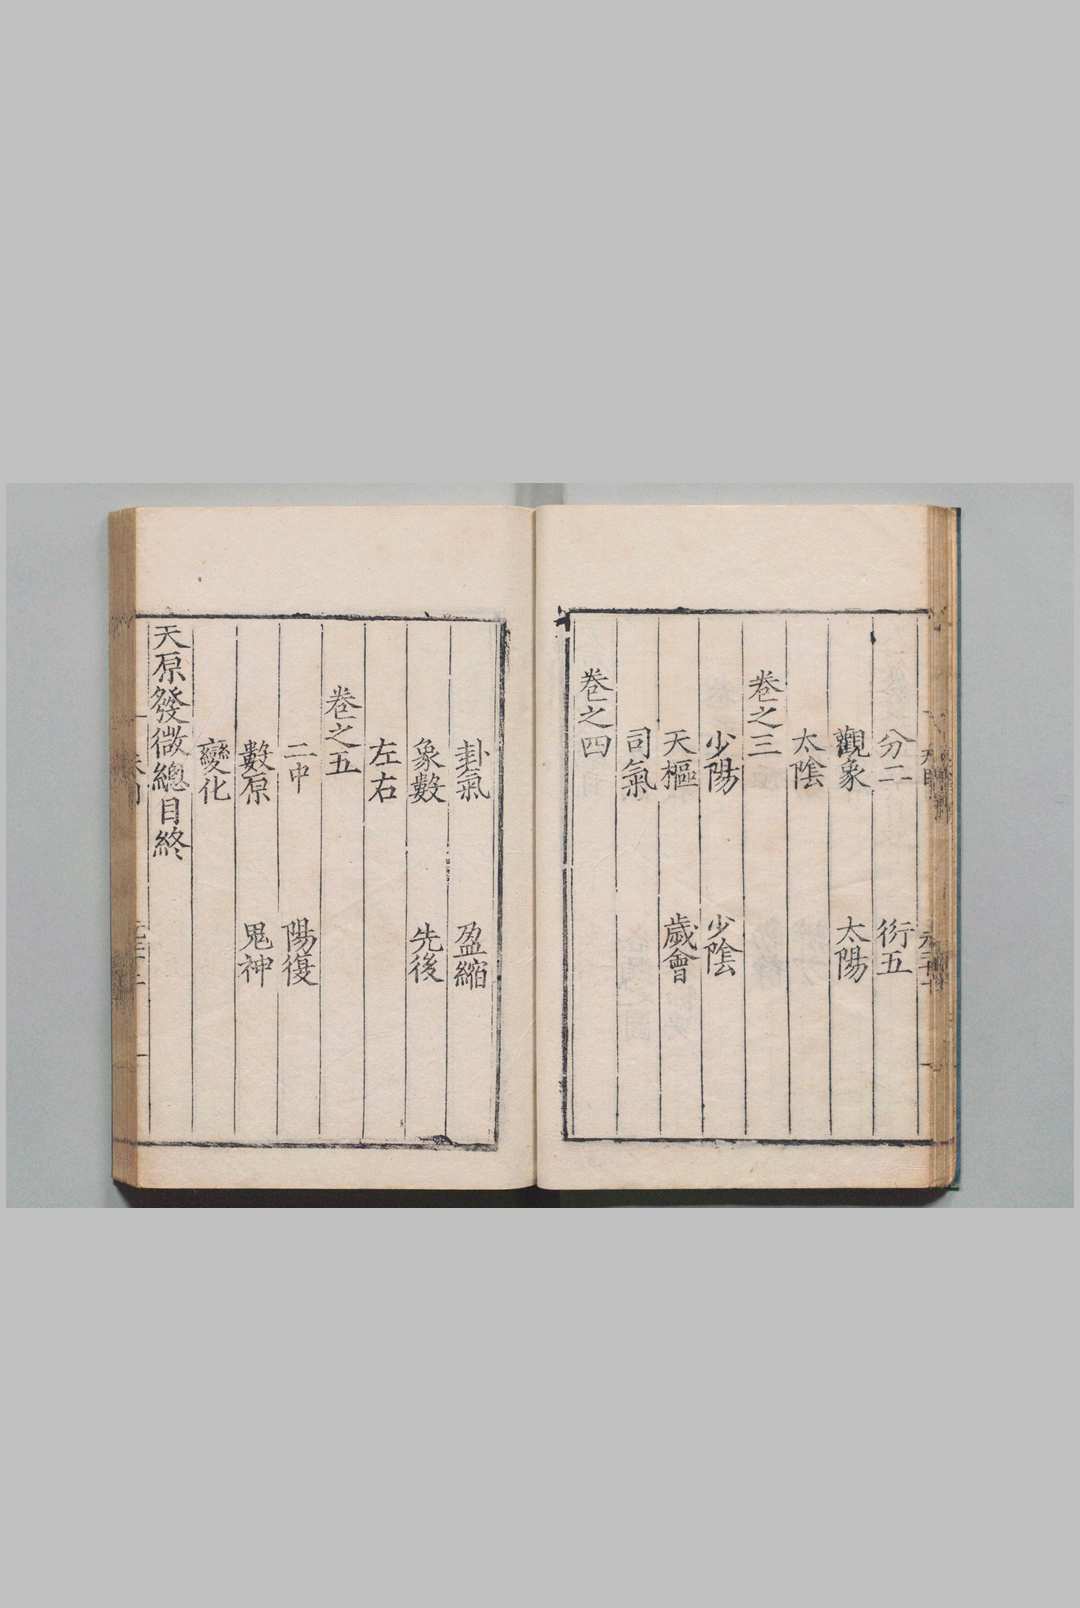 分二　衍五
觀象　太陽
太陰
卷之三
少陽　少陰
天樞　歲會
司氣
卷之四
卦氣　盈縮
象數　先後
左右
卷之五
二中　陽復
數原　鬼神
變化
天原發微總目終